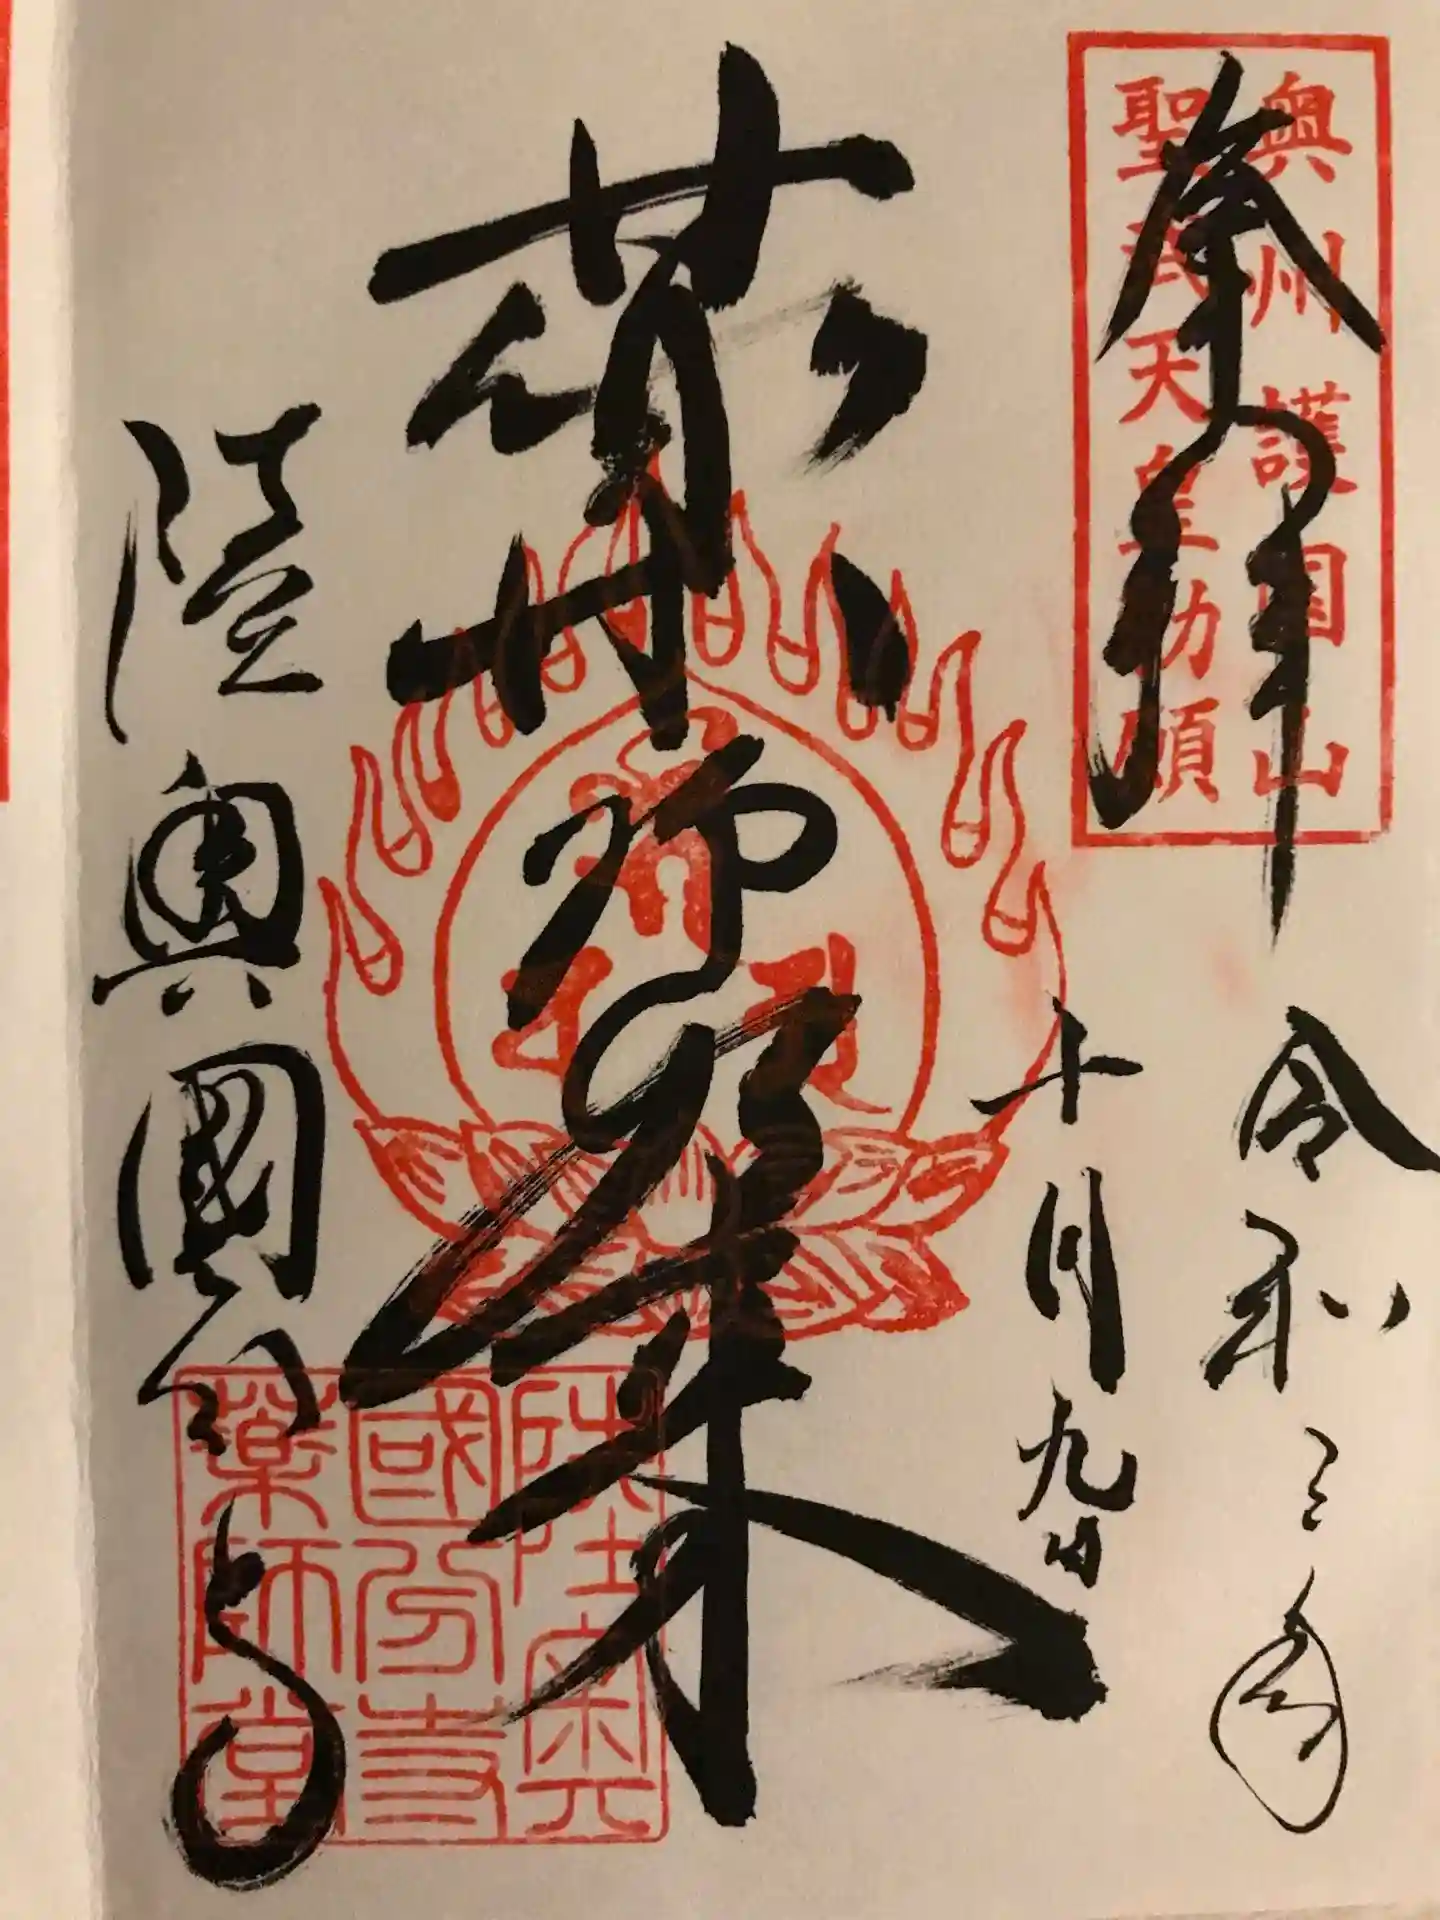 奉拝
奥州護国山
聖武天皇勅願
令和三年
十月九日
薬師如来
陸奥國分寺
陸奥
國分寺
薬師堂